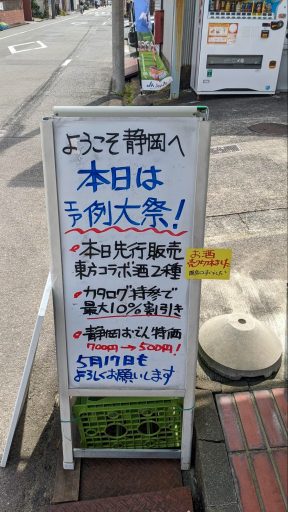 ようこそ静岡へ
本日は
エア例大祭!
本日先行販売
東方コラボ酒2種
カタログ持参で
最大10%割引き
静岡おでん特価
700円→500円!
5月17日も
よろしくお願いします
お酒
売り切れました